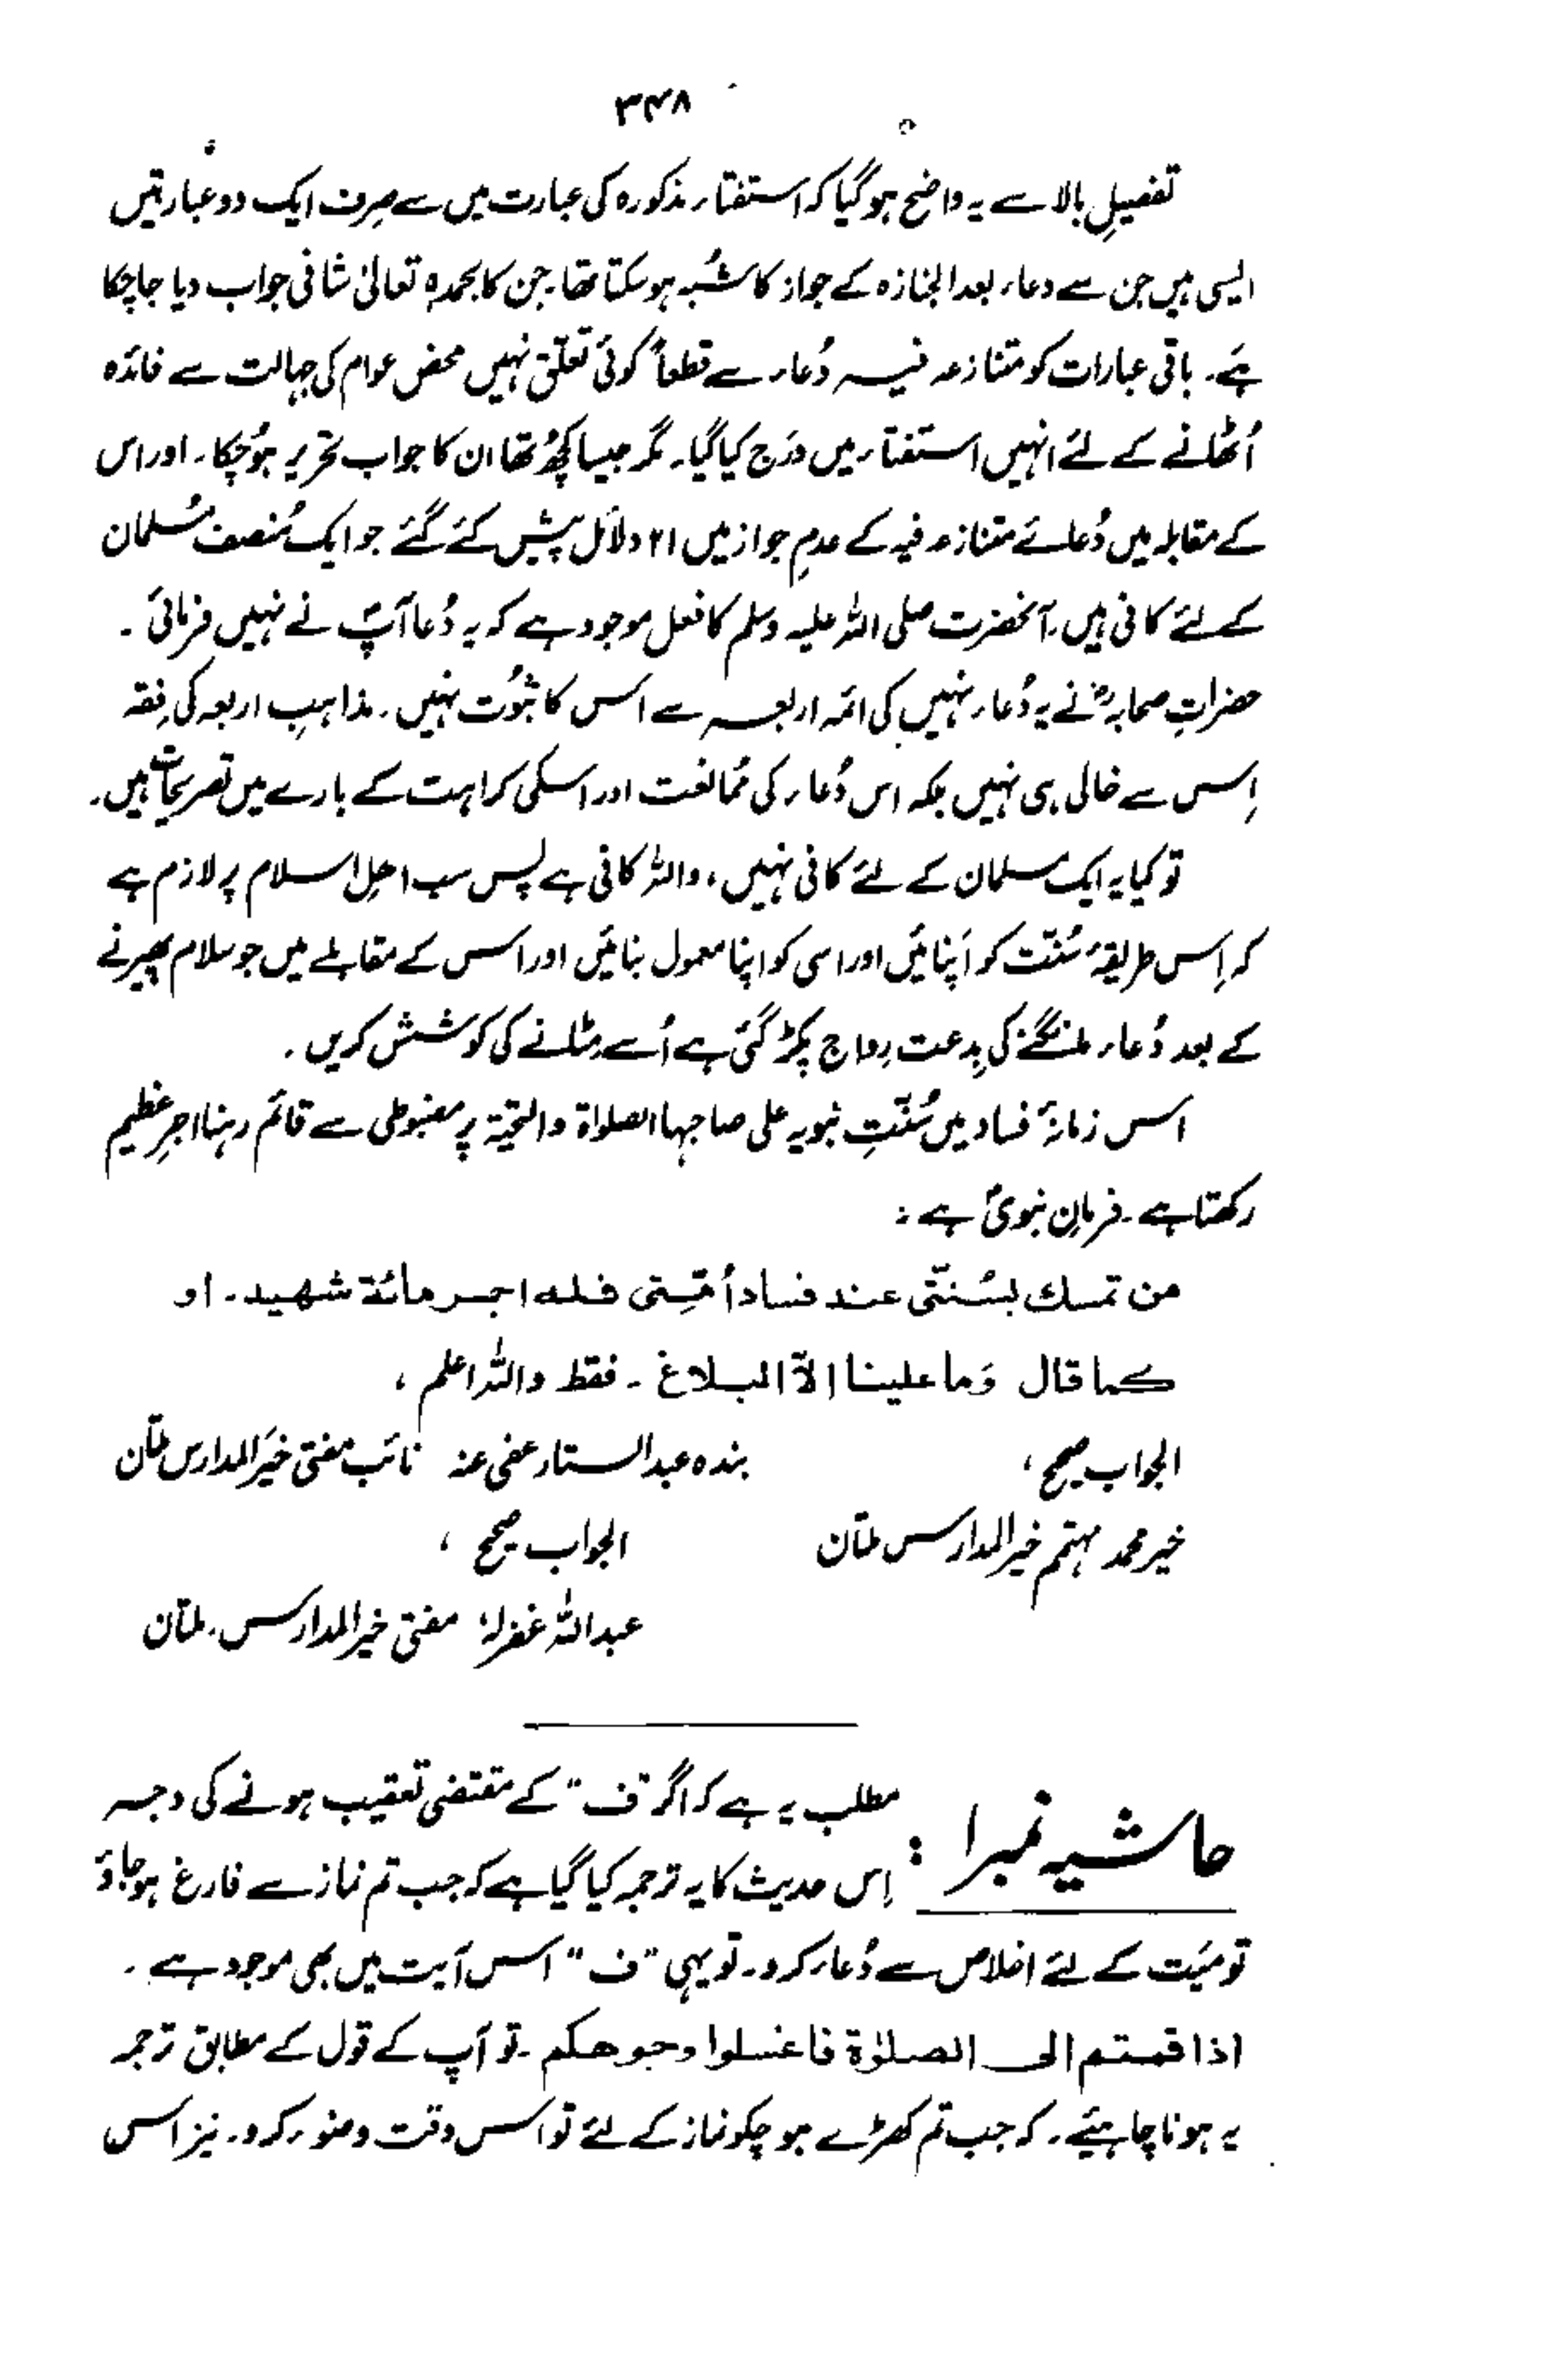 ۳۴۸
تفصیلِ بالا سے یہ واضح ہوگیا کہ استفتاء مذکورہ کی عبارت میں سے صِرف ایک دو عبارتیں
ایسی ہیں جن سے دعاء بعد الجنازہ کے جواز کا شُبہ ہوسکتا تھا۔ جن کا بحمدہٖ تعالیٰ شافی جواب دیا جاچکا
ہے۔ باقی عبارات کو متنازعہ فیہ دُعاء سے قطعاً کوئی تعلّق نہیں محض عوام کی جہالت سے فائدہ
اُٹھانے کے لئے انہیں استفتاء میں درج کیا گیا۔ مگر جیسا کچھ تھا ان کا جواب تحریر ہوچکا۔ اور اس
کے مقابلہ میں دُعائے متنازعہ فیہ کے عدمِ جواز میں ۲۱ دلائل پیش کئے گئے جو ایک مُنصف مُسلمان
کے لئے کافی ہیں۔ آنحضرت صلی اللہ علیہ وسلم کا فعل موجود ہے کہ یہ دُعا آپؐ نے نہیں فرمائی۔
حضراتِ صحابہؓ نے یہ دُعاء نہیں کی ائمہ اربعہ سے اس کا ثبوُت نہیں۔ مذاہبِ اربعہ کی فِقہ
اِس سے خالی ہی نہیں بلکہ اس دُعاء کی مُمانعت اور اسکی کراہت کے بارے میں تصریحات ہیں۔
تو کیا یہ ایک مسلمان کے لئے کافی نہیں، واللہ کافی ہے پس سب اھلِ اسلام پر لازم ہے
کہ اِس طریقۂ سُنّت کو اَپنائیں اور اسی کو اپنا معمول بنائیں اور اس کے مقابلے میں جو سلام پھیرنے
کے بعد دُعاء مانگنے کی بِدعت رِواج پکڑ گئی ہے اُسے مِٹانے کی کوشش کریں۔
اس زمانۂ فساد میں سُنّتِ نبویہ علی صاحبہا الصلواۃ والتحیّۃ پر مضبوطی سے قائم رہنا اجرِ عظیم
رکھتا ہے۔ فرمانِ نبویؐ ہے:
من تمسك بسُنتّی عند فساد اُمّتِی فله اجر مائة شهید۔ او
كما قال وَما علینا الّا البلاغ۔ فقط واللہ اعلم،
الجواب صحیح، بندہ عبدالستار عفی عنہ نائب مفتی خیرَالمدارس ملتان
خیر محمد مہتمم خیر المدارس ملتان الجواب صحیح،
عبداللہ غفرلہٗ مفتی خیر المدارس۔ ملتان
حاشیہ نمبر۱: مطلب یہ ہے کہ اگر "ف" کے مقتضی تعقیب ہونے کی وجہ
اِس حدیث کا یہ ترجمہ کیا گیا ہے کہ جب تم نماز سے فارغ ہوجاؤ
تو میّت کے لئے اخلاص سے دُعاء کرو۔ تو یہی "ف" اس آیت میں بھی موجود ہے۔
اذا قمتم الی الصلوٰة فاغسلوا وجوھکم۔ تو آپ کے قول کے مطابق ترجمہ
یہ ہونا چاہیئے۔ کہ جب تم کھڑے ہو چکو نماز کے لئے تو اس وقت وضوء کرو۔ نیز اس